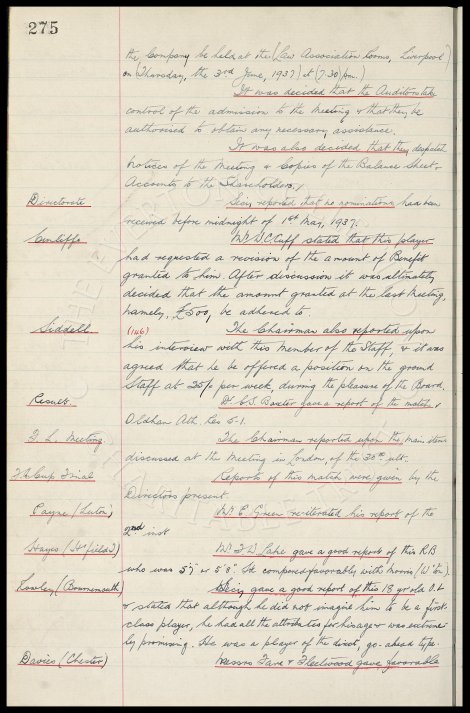 275
the Company be held at the (Law Association Rooms, Liverpool)
on (Thursday, the 3rd June, 1937) at (7.30 pm.)
It was decided that the Auditors take
control of the admission to the Meeting & that they be
authorised to obtain any necessary assistance.
It was also decided that they despatch
notices of the Meeting & Copies of the Balance Sheet &
Accounts to the Shareholders.
Directorate Secy reported that no nominations had been
received before midnight of 1st May, 1937.
Cunliffe Mr W.C. Cuff stated that this player
had requested a revision of the amount of Benefit
granted to him. After discussion it was ultimately
decided that the amount granted at the last Meeting,
namely, £500, be adhered to.
Liddell (146) The Chairman also reported upon
his interview with this Member of the Staff, & it was
agreed that he be offered a position on the ground
Staff at 35/- per week, during the pleasure of the Board.
Result. Dr C.S. Baxter gave a report of the match v
Oldham Ath Res 5-1.
F. L. Meeting The Chairman reported upon the main items
discussed at the Meeting in London of the 30th ult.
F.A. Cup Final Reports of this match were given by the
Directors present.
Payne (Luton) Mr E. Green re-iterated his report of the
2nd inst
Hayes (H'field T) gave a good report of this RB
who was 5'7" or 5'8". He compared favorably with Morris (W'ton).
(Bournemouth) Secy gave a good report of this 18 yr old O.L
& stated that although he did not imagine him to be a first-
class player, he had all the attributes for his age & was
promising. He was a player of the direct, go-ahead type.
Davies (Chester) Messrs & Fleetwood gave favorable